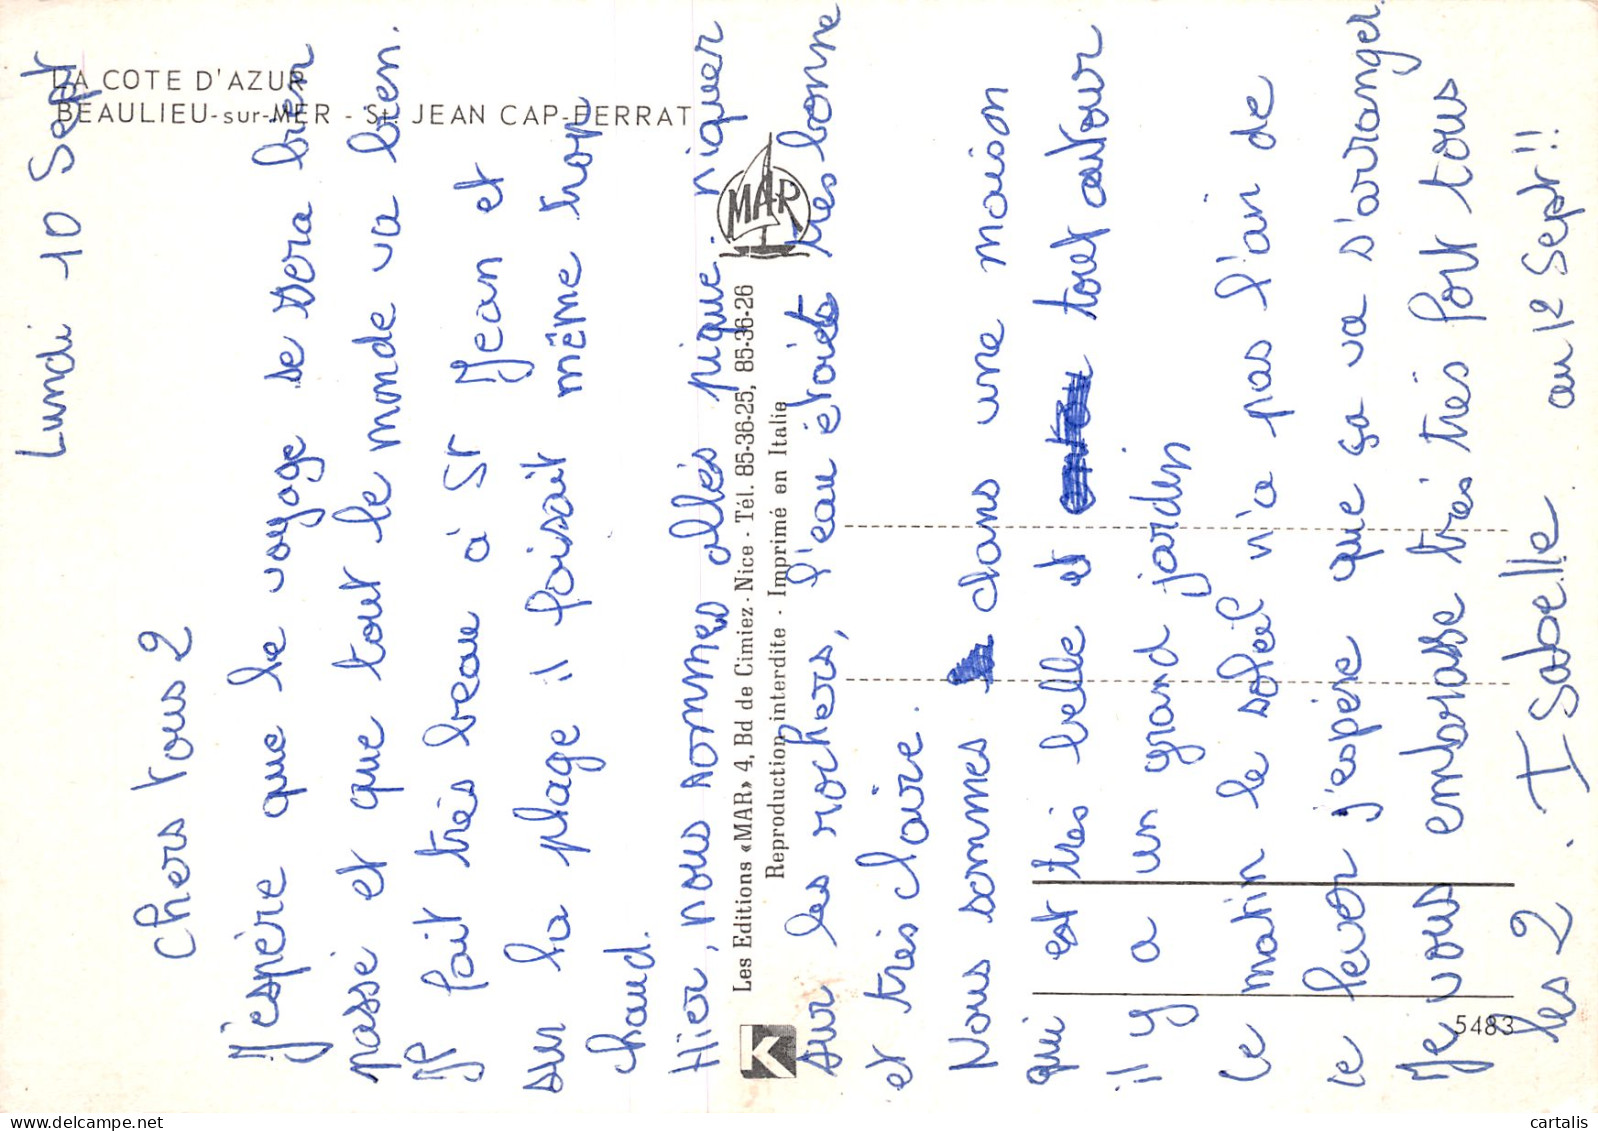 LA COTE D'AZUR
BEAULIEU-sur-MER - St. JEAN CAP-FERRAT
Lundi 10 Sept
Chers vous 2
J'espère que le voyage se sera bien
passé et que tout le monde va bien.
Il fait très beau à St Jean et
sur la plage il faisait même trop
chaud.
Hier, nous sommes allés pique-niquer
sur les rochers, l'eau était très bonne
et très claire.
Nous sommes dans une maison
qui est très belle et tout autour
il y a un grand jardin
Ce matin le soleil n'a pas l'air de
se lever j'espère que ça va s'arranger.
Je vous embrasse très très fort tous
les 2. Isabelle au 12 Sept!!
MAR
Les Editions «MAR» 4, Bd de Cimiez - Nice - Tél. 85-36-25, 85-36-26
Reproduction interdite - Imprimé en Italie
K
5483
cartalis
www.delcampe.net